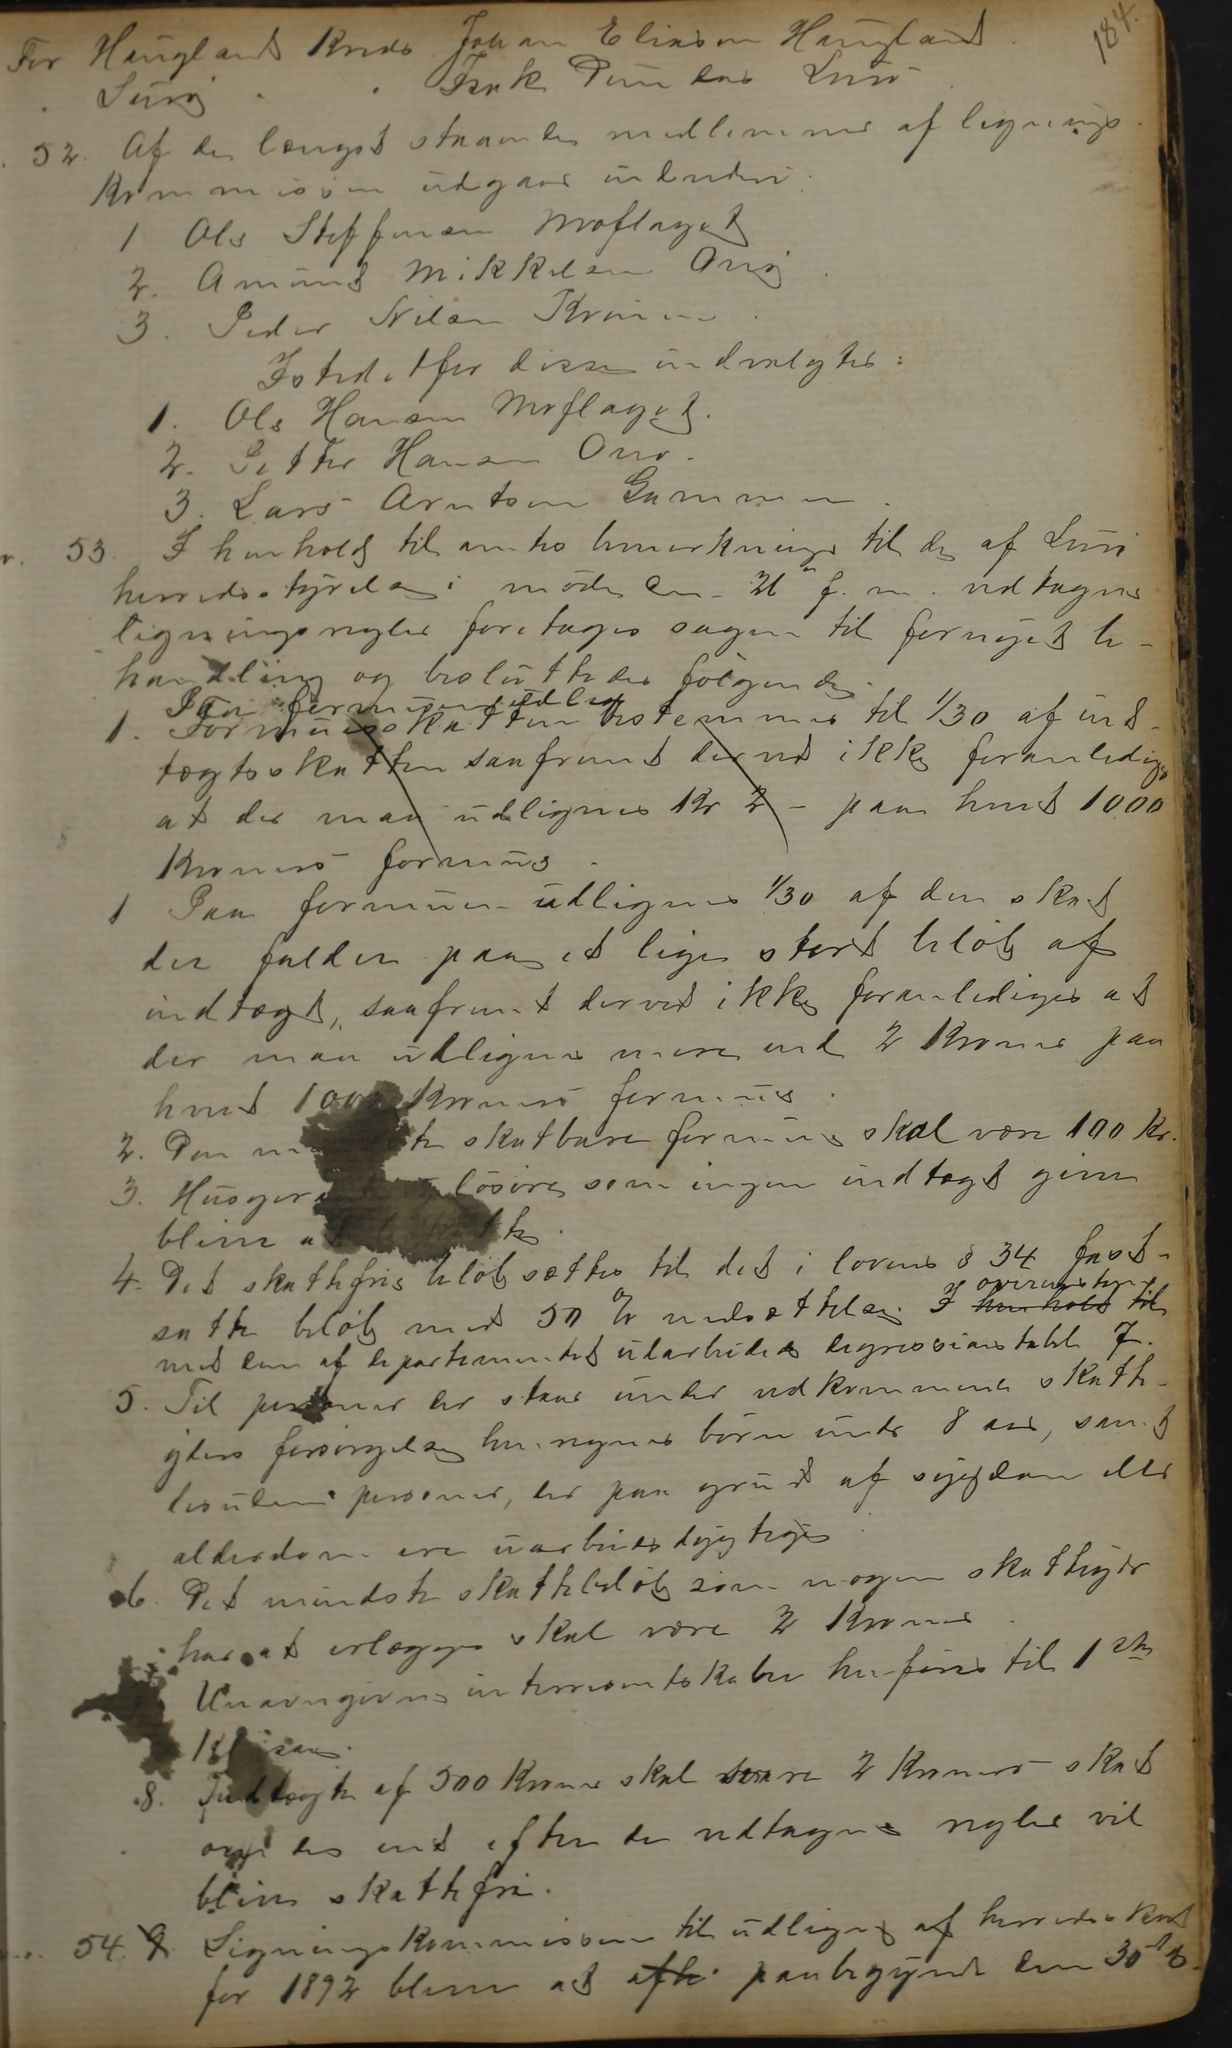 184.
For Hauglands Kreds Johan Eliassen Haugland.
" Lurø " " Isak Dundas Lurø
52. Af de længst staaende medlemmer af lignings-
kommissionen udgaar indenden:
1 Ole Steffensen Moflaget
2. Amund Mikkelsen Onø.
3. Peder Nilsen Kvinen.
Istedetfor disse indvalgtes:
1. Ole Hansen Moflaget.
2. Petter Hansen Onø.
3. Lars Arntsen Gammen.
53. I henhold til amtets bemerkninger til de af Lurø
herredsstyrelse i møde den 21 f. m. vedtagne
ligningsregler foretages sagen til fornyet be-
handling og besluttedes følgende:
Paa formuen udlig
1. Formuesskatten bestemmes til 1/30 af ind-
tægtsskatten saafremt derved ikke foranlediges
at der maa udlignes Kr 2 - paa hvert 1000
Kroners formue.
1 Paa formuen udlignes 1/30 af den skat
der falder paa et lige stort beløb af
indtægt, saafremt derved ikke foranlediges at
der maa udlignes mere end 2 Kroner paa
hvert 1000 Kroners formue.
2. Den skatbare formue skal være 100 Kr.
3. løsøre som ingen indtægt giver
blive at
4. Det skattefrie beløb sættes til det i lovens § 34 fast-
satte beløb med 50 % nedsættelse. I henhold til overensstem
med den af departementet udarbeidede degressionstabel 7.
5. Til personer der staar under vedkommende skatte-
yders forsørgelse henregnes børn under 8 aar, samt
desuden personer, der paa grund af sygdom eller
alderdom ere uarbeidsdygtige.
6. Det mindste skattebeløb som nogen skatteyder
har at erlægge skal være 2 Kroner.
Unavngivne interessentskaber henføres til 1ste
Klasse.
8. Indtægte af 500 Kroner skal svare 2 Kroners skat
om den end efter de vedtagne regler vil
blive skattefri.
54. 9. Ligningskommissionen til udligning af herredsskat
for 1892 bliver at paabegynde den 30